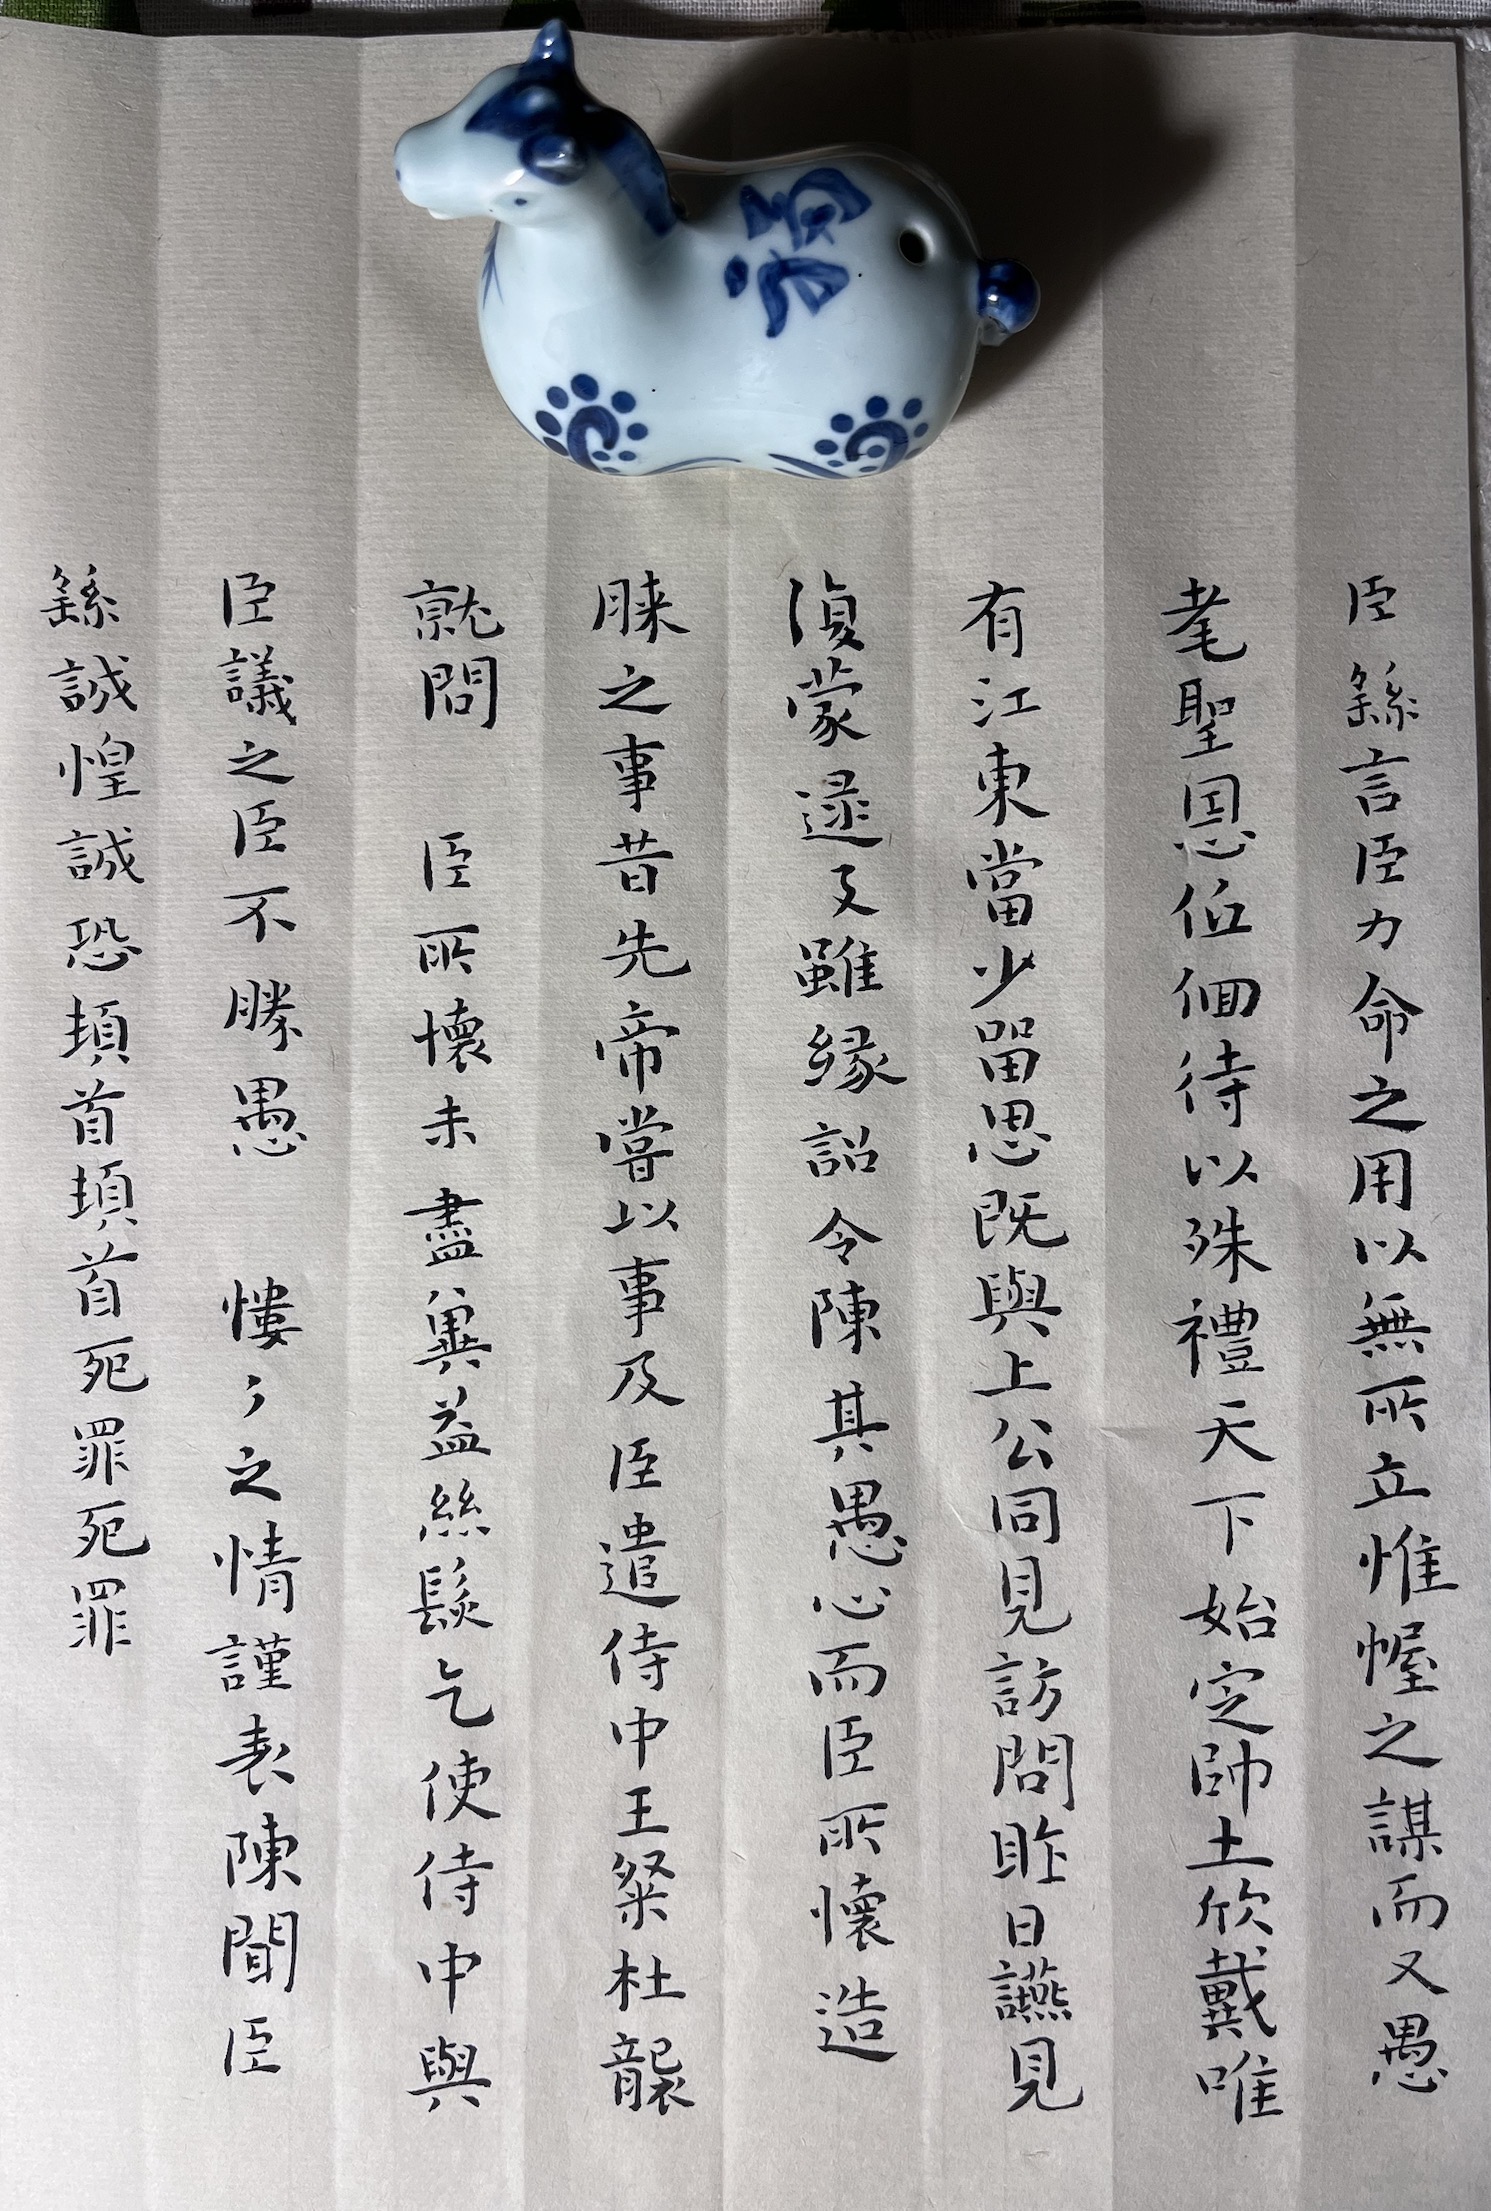 臣繇言臣力命之用以無所立惟幄之謀而又愚
耄聖恩低佪待以殊禮天下始定帥土欣戴唯
有江東當少留思既與上公同見訪問昨日讌見
復蒙逮及雖緣詔令陳其愚心而臣所懷造
膝之事昔先帝嘗以事及臣遣侍中王粲杜襲
就問 臣所懷未盡冀益絲髮乞使侍中與
臣議之臣不勝愚 慺々之情謹表陳聞臣
繇誠惶誠恐頓首頓首死罪死罪